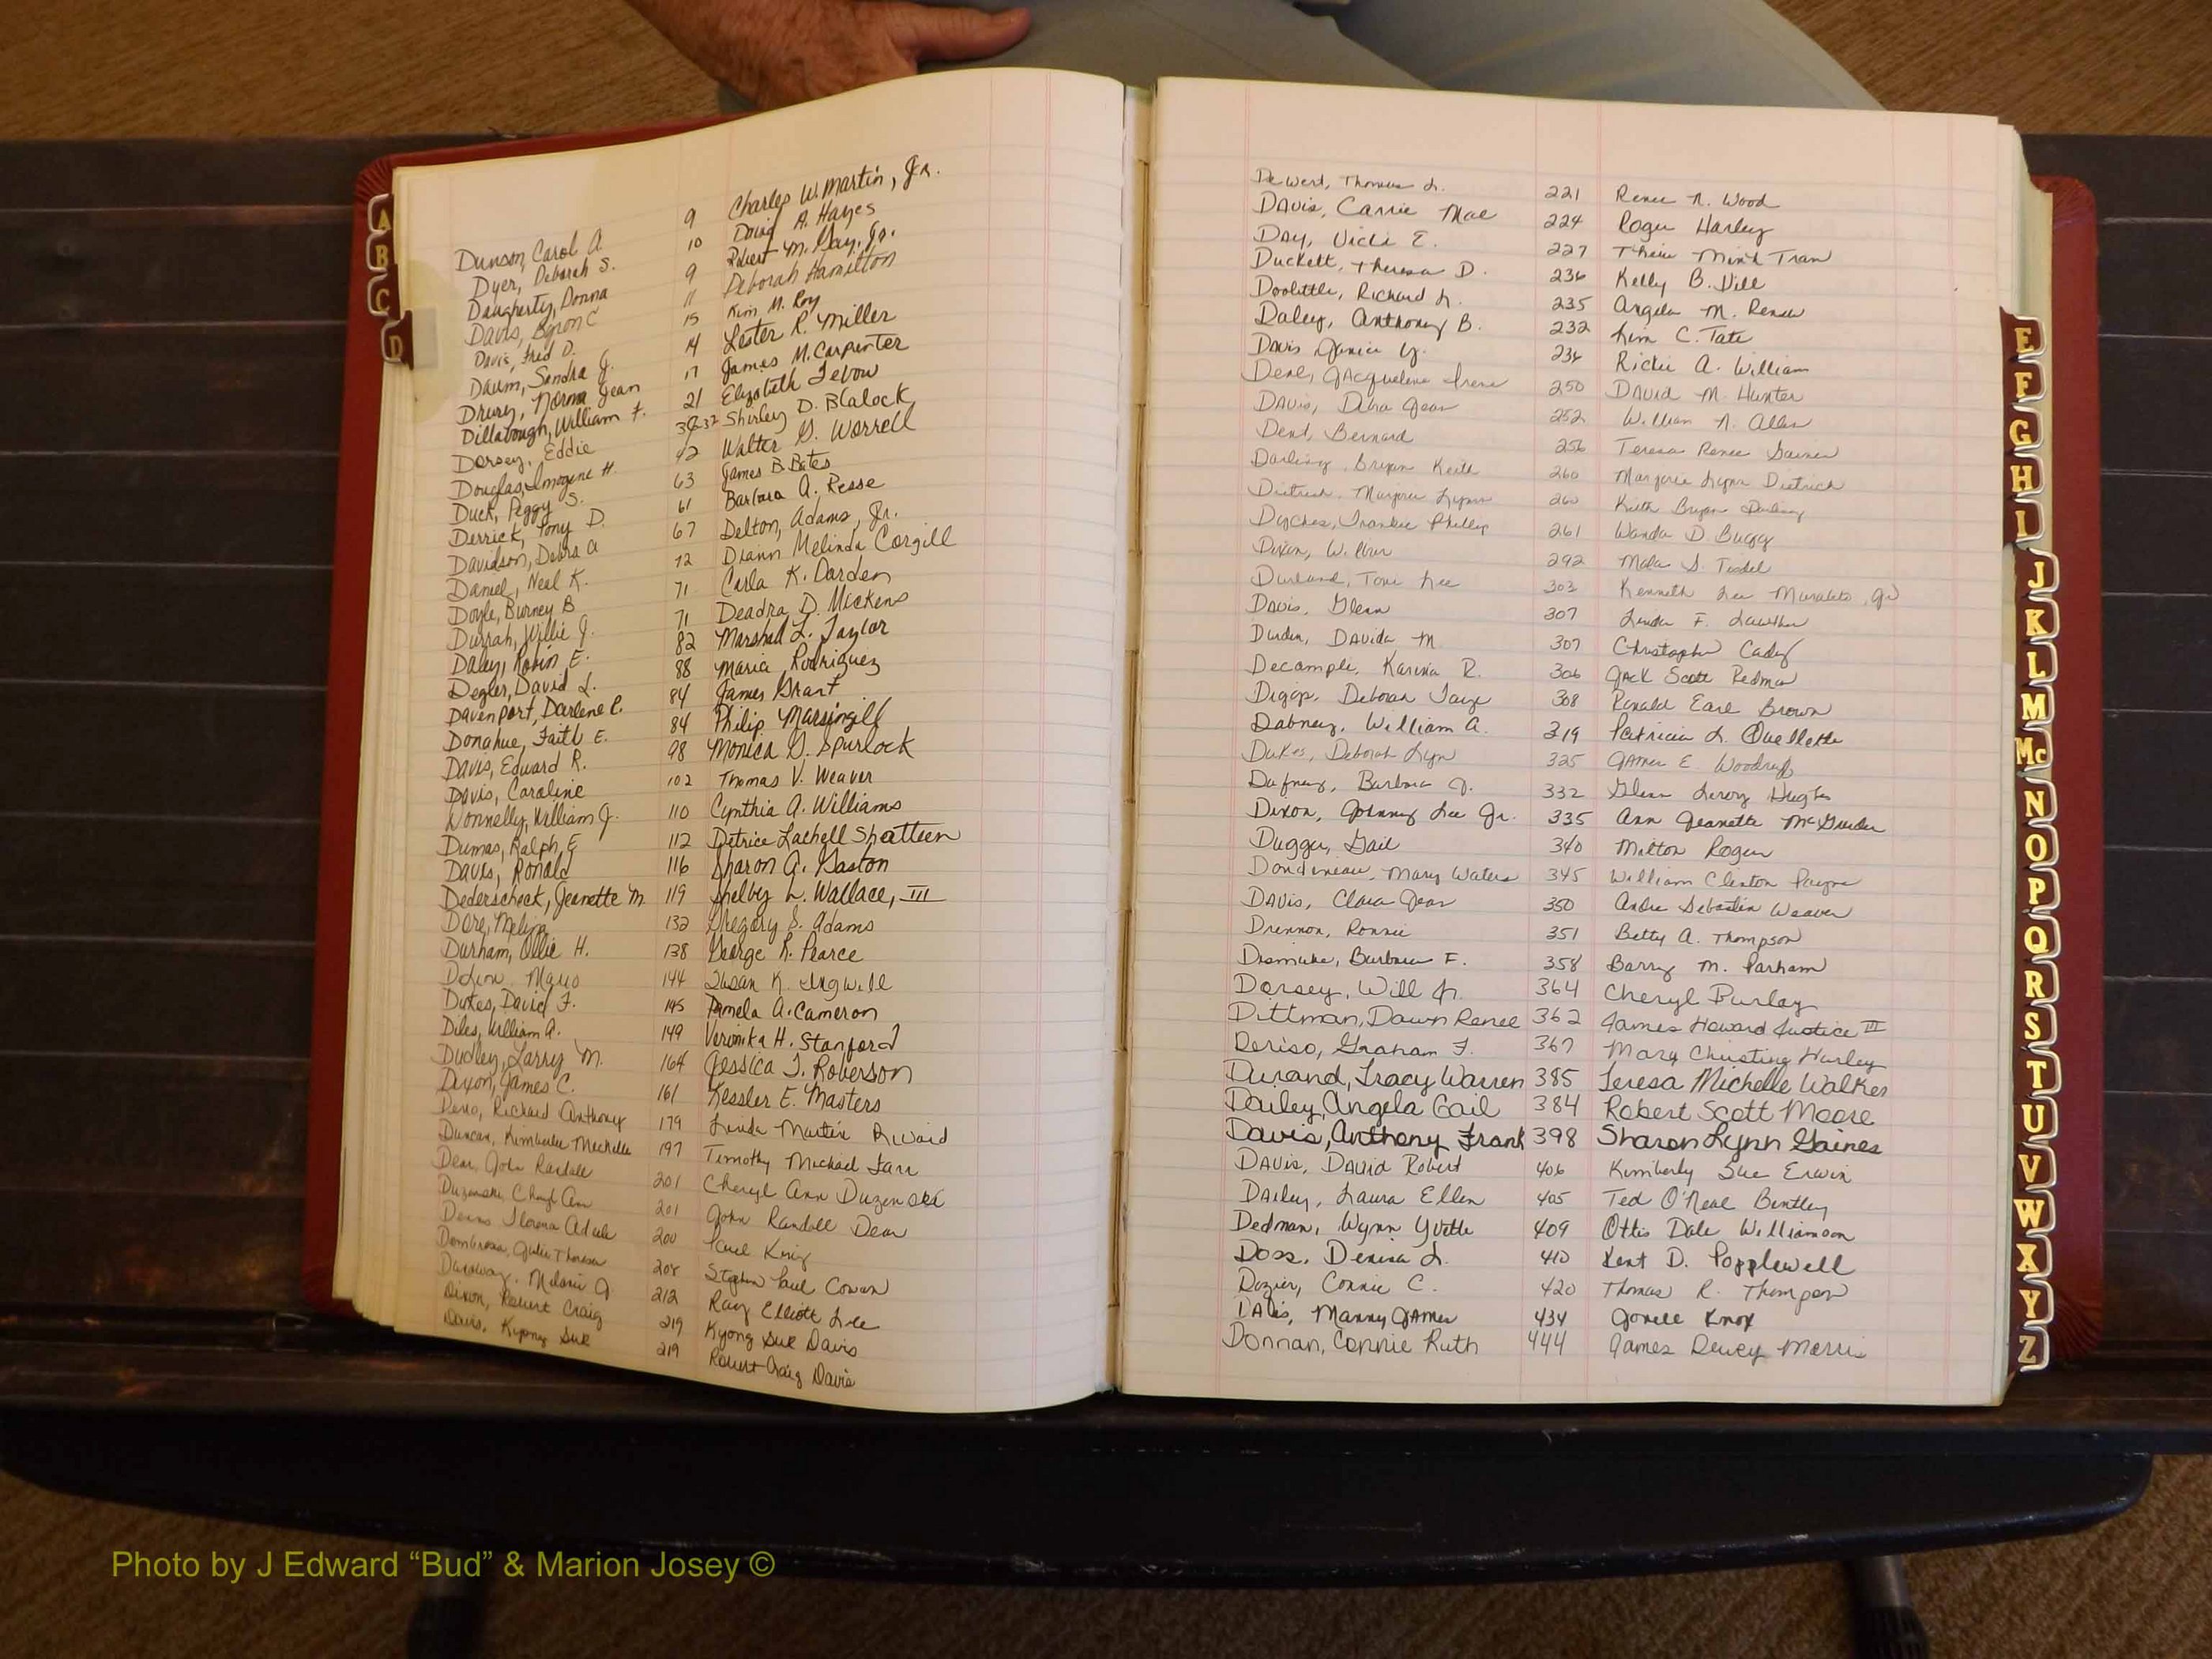 Dunson, Carol A. 9 Charles W. Martin, Jr.
Dyer, Deborah S. 10 Doug A. Hayes
Daugherty, Donna 9 Robert M. Gay, Jr.
Davis, Byron C 11 Deborah Hamilton
Davis, Fred D. 15 Kim M. Roy
Daum, Sandra J. 14 Lester R. Miller
Drury, Norma Jean 17 James M. Carpenter
Dillabough, William F. 21 Elizabeth Lebow
Dorsey, Eddie Shirley D. Blalock
Douglas, Imogene H. 42 Walter G. Worrell
Duck, Peggy S. 63 James B. Bates
Derrick, Tony D. 61 Barbara A. Resse
Davidson, Debra A 67 Delton, Adams, Jr.
Daniel, Neal K. 72 Diann Melinda Corgill
Doyle, Burney B 71 Carla K. Darden
Durrah, Willie J. 71 Deadra D. Mickens
Daley, Robin E. 82 Marshal L. Taylor
Degler, David L. 88 Maria Rodriguez
Davenport, Darlene P. 84 James Grant
Donahue, Faith E. 84 Philip Marsingill
Davis, Edward R. 98 Monica D. Spurlock
Davis, Caroline 102 Thomas V. Weaver
Donnelly, William J. 110 Cynthia A. Williams
Dumas, Ralph E 112 Detrice Lachell Shatteen
Davis, Ronald 116 Sharon A. Gaston
Dederscheck, Jeanette M. 119 Shelby L. Wallace, III
Dore, 132 Gregory S. Adams
Durham, Ollie H. 138 George R. Pearce
144 Susan K. Ingwell
Dukes, David F. 145 Pamela A. Cameron
Diles, William A. 149 Veronika H. Stanford
Dudley, Larry M. 164 Jessica T. Roberson
Dixon, James C. 161 Kessler E. Masters
Richard Anthony 179 Linda Martin
Duncan, Kimberlee Mechelle 197 Timothy Michael Farr
Dean, John Randall 201 Cheryl Ann Duzenski
Duzenski, Cheryl Ann 201 John Randall Dean
200 Paul King
208 Stephen Paul Cowan
212 Ray Elliott Lee
Dixon, Robert Craig 219 Kyong Sue Davis
Davis, Kyong Sue 219 Robert Craig Davis
DeWert, Thomas L. 221 Renee N. Wood
Davis, Carrie Mae 224 Roger Harley
Day, Vicki E. 227 Minh Tran
Duckett, Theresa D. 236 Kelly B. Dill
Doolittle, Richard L. 235 Angela M.
Daley, Anthony B. 232 Kim C. Tate
Davis Janice Y. 234 Rickie A. William
Jacqueline Irene 250 David M. Hunter
Davis, Debra Jean 252 William N. Allen
Dent, Bernard 256 Teresa Renee
Darling, Bryan Keith 260 Marjorie Lynn Dietrich
Dietrich, Marjorie Lynn 260 Keith Bryan Darling
Dyches, Frankie Phillip 261 Wanda D. Buggy
292
Toni Lee 303 Kenneth Lee
Davis, Glenn 307 Linda F. Lawther
Durden, Davida M. 307 Christopher Cady
Decample, Karina R. 306 Jack Scott Redman
Diggs, Deborah Faye 308 Ronald Earl Brown
Dabney, William A. 319 Patricia L. Ouellette
Dukes, Deborah Lyn 325 James E. Woodruff
Dafney, Barbara J. 332 Glenn Leroy Hughes
Dixon, Johnny Lee Jr. 335 Ann Jeanette McGruder
Dugger, Gail 340 Milton Rogers
Dondineau, Mary Waters 345 William Clinton Payne
Davis, Clara Jean 350 Andre Sebastin Weaver
Drennon, Ronnie 351 Betty A. Thompson
Dismuke, Barbara F. 358 Barry M. Parham
Dorsey, Will Jr. 364 Cheryl Burlay
Dittman, Dawn Renee 362 James Howard Justice III
Deriso, Graham F. 367 Mary Christina Hurley
Durand, Tracy Warren 385 Teresa Michelle Walker
Dailey, Angela Gail 384 Robert Scott Moore
Davis, Anthony Frank 398 Sharon Lynn Gaines
Davis, David Robert 406 Kimberly Sue Erwin
Dailey, Laura Ellen 405 Ted O'Neal Bentley
Dedman, Wynn Yvette 409 Ottis Dale Williamson
Doss, Denisa L. 410 Kent D. Popplewell
Dozier, Connie C. 420 Thomas R. Thompson
Davis, Manny James 434 Jonell Knox
Donnan, Connie Ruth 444 James Dewey Morris
A
B
C
D
E
F
G
H
I
J
K
L
M
Mc
N
O
P
Q
R
S
T
U
V
W
X
Y
Z
Photo by J Edward “Bud” & Marion Josey ©